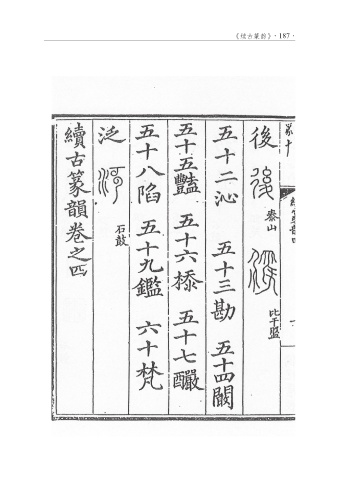 《续古篆韵》·187·
後 泰山 比干盤
五十二沁 五十三勘 五十四闞
五十五豔 五十六㮇 五十七釅
五十八陷 五十九鑑 六十梵
泛 石鼓
續古篆韻卷之四